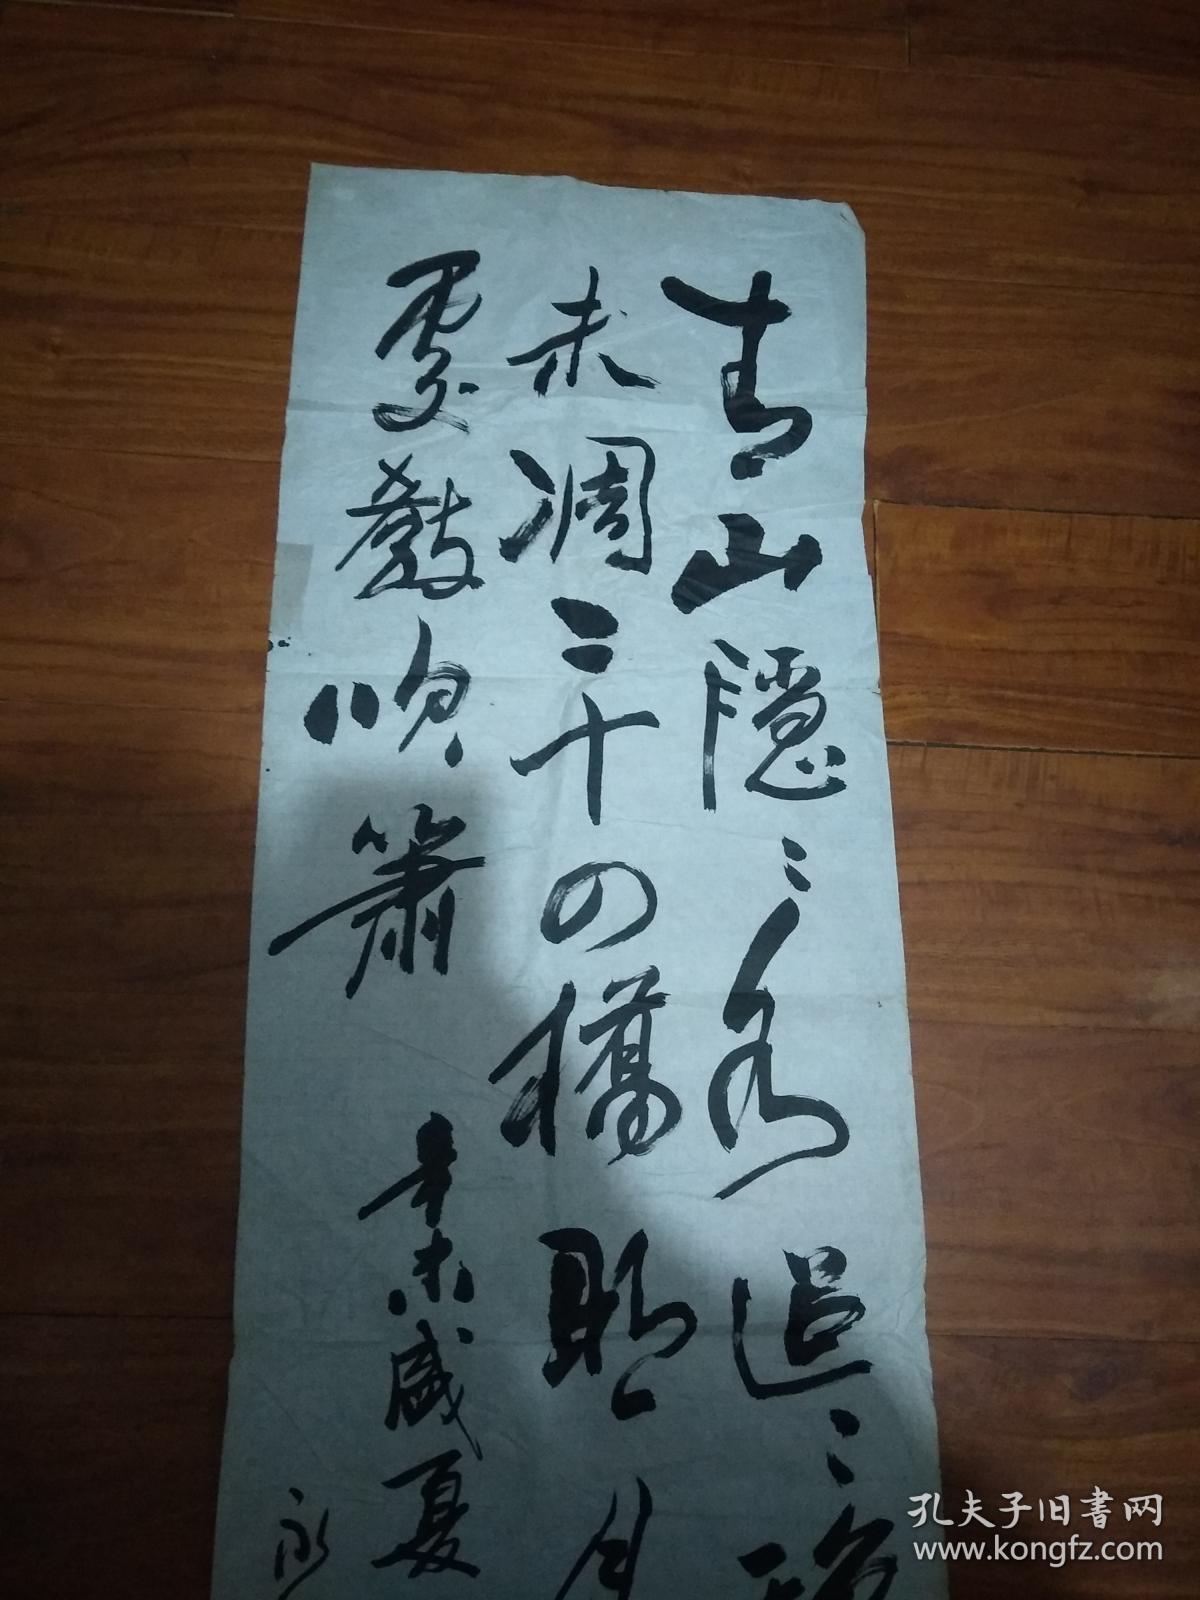 青山隐〻水迢〻
未凋二十四橋明月
處教吹簫
辛未盛夏
永
孔夫子旧書网
www.kongfz.com